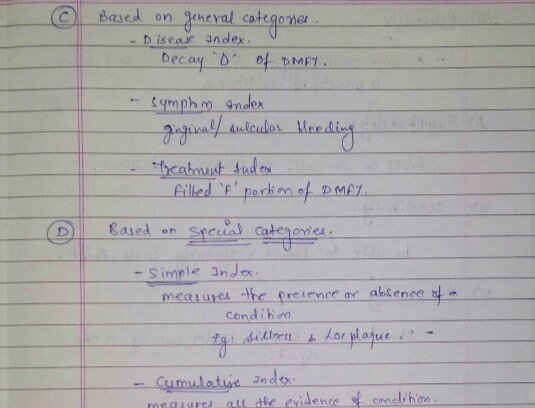 C Based on general categories.
- Disease Index.
Decay "D" of DMFT.
- Symptom Index
gingival/ sulcular bleeding
- Treatment Index
Filled 'F' portion of DMFT.
D Based on Special Categories.
- Simple Index.
measures the presence or absence of a
condition
eg: Silness & Loe plaque. -
- Cumulative Index.
measures all the evidence of condition.